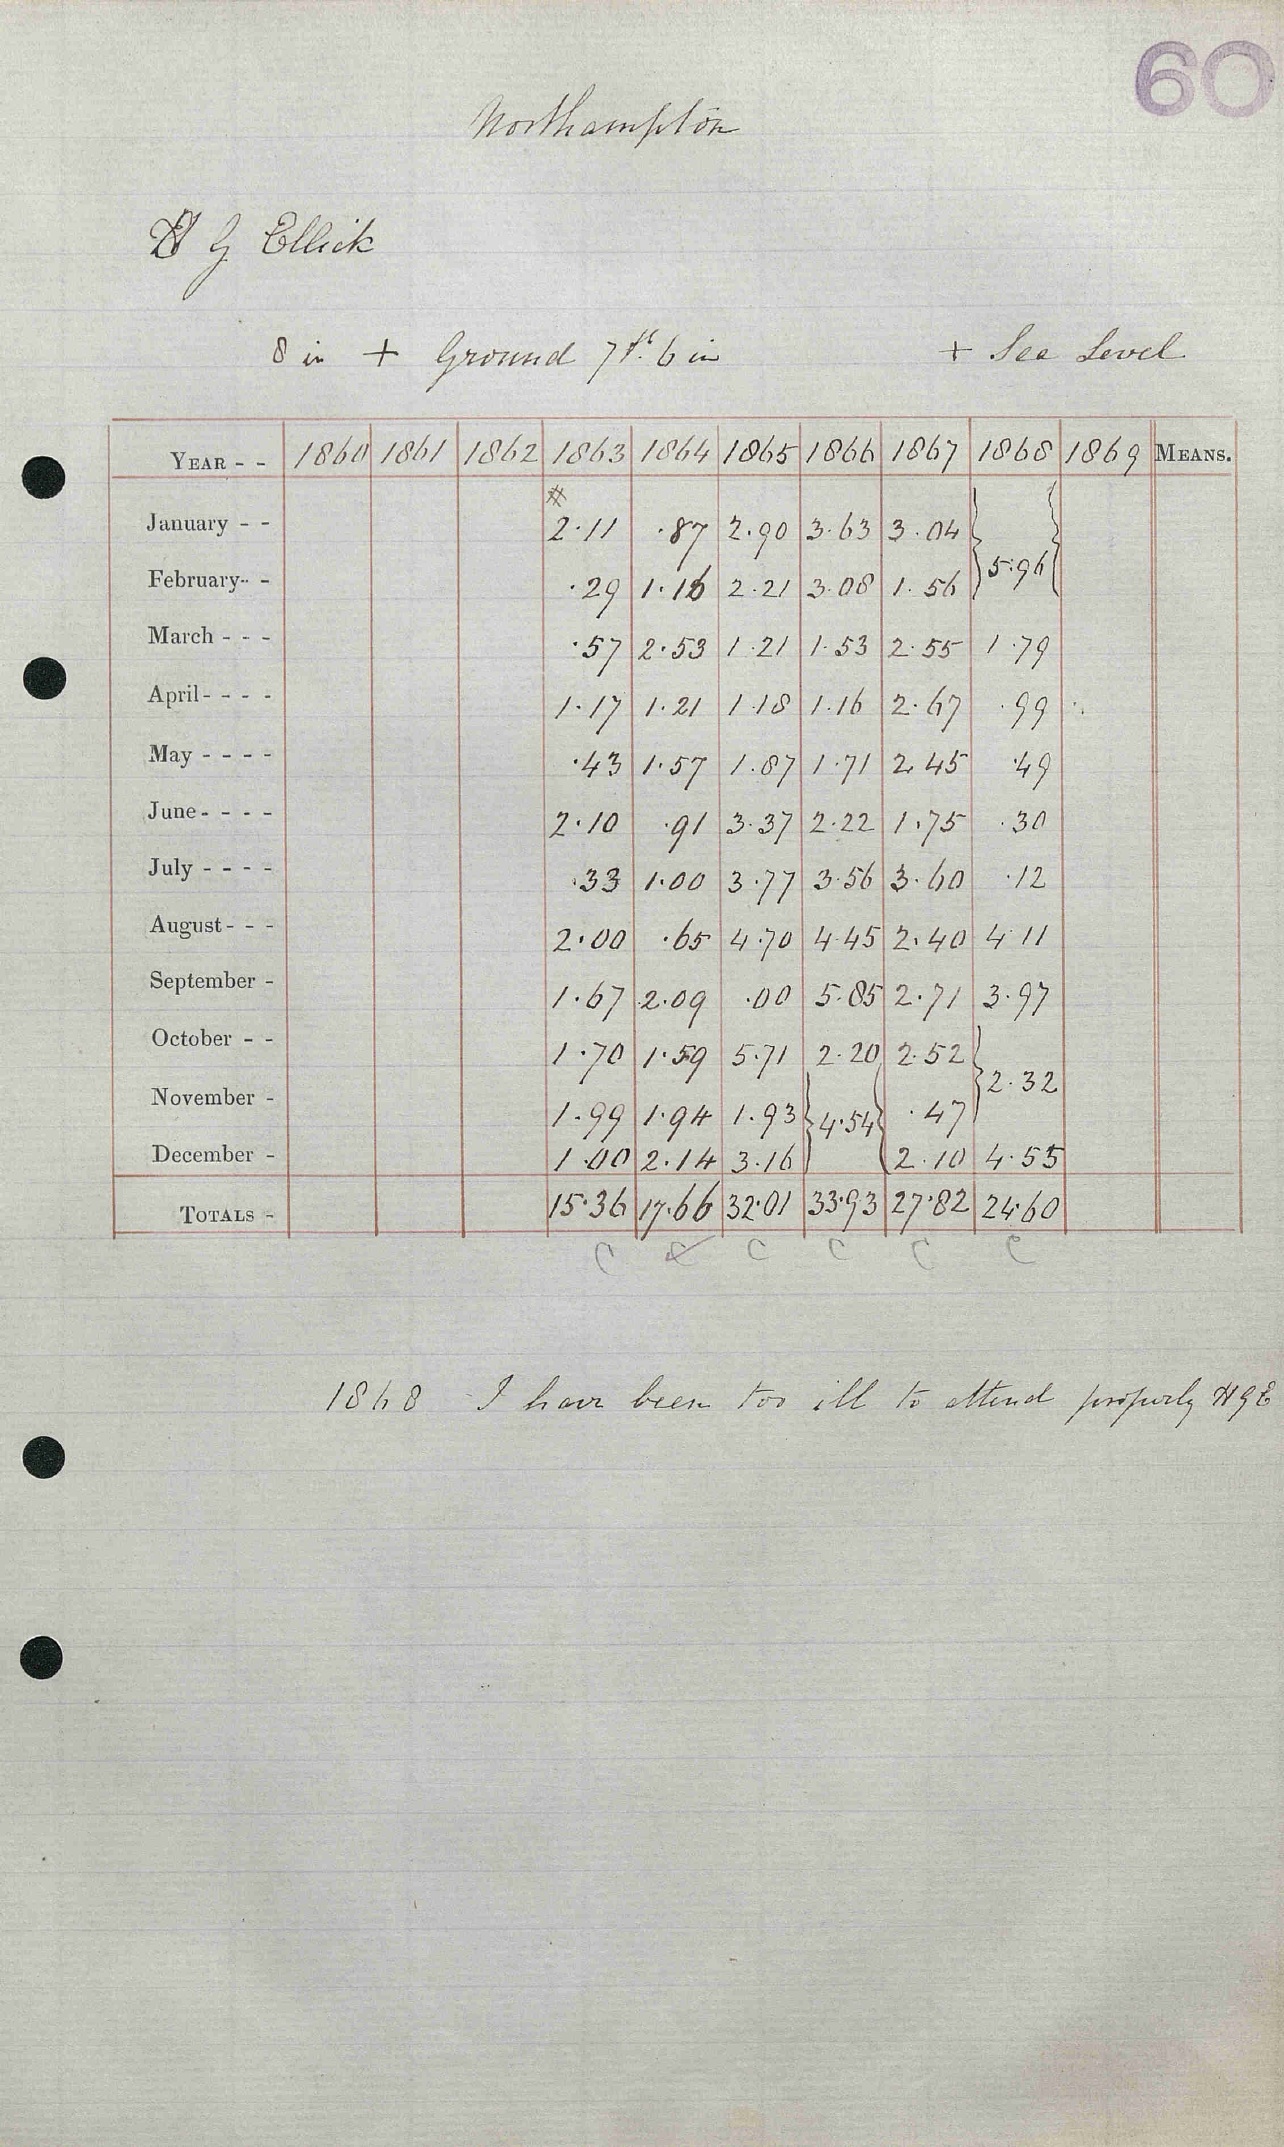 60
Northampton
H G Ellick
8 in + Ground 7ft. 6 in + Sea Level
YEAR - - 1860 1861 1862 1863 1864 1865 1866 1867 1868 1869 MEANS.
#
January - - 2.11 .87 2.90 3.63 3.04
February - - .29 1.16 2.21 3.08 1.56 } 5.96 {
March - - - .57 2.53 1.21 1.53 2.55 1.79
April - - - - 1.17 1.21 1.18 1.16 2.67 .99
May - - - - .43 1.57 1.87 1.71 2.45 .49
June - - - - 2.10 .91 3.37 2.22 1.75 .30
July - - - - .33 1.00 3.77 3.56 3.60 .12
August - - - 2.00 .65 4.70 4.45 2.40 4.11
September - 1.67 2.09 .00 5.85 2.71 3.97
October - - 1.70 1.59 5.71 2.20 2.52 } 2.32
November - 1.99 1.94 1.93 } 4.54 { .47
December - 1.00 2.14 3.16 2.10 4.55
TOTALS - 15.36 17.66 32.01 33.93 27.82 24.60
C C C C C C
1868 - I have been too ill to attend properly H G E